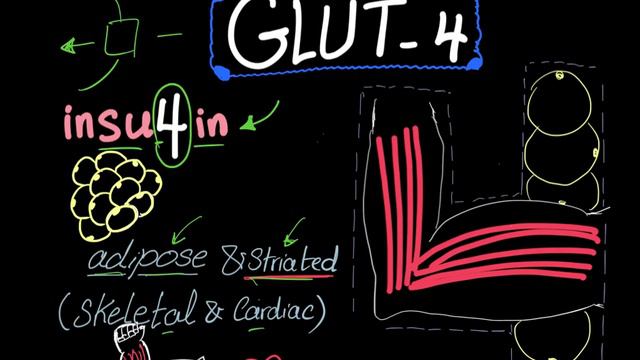 GLUT-4
insu4in
adipose & striated
(skeletal & cardiac)